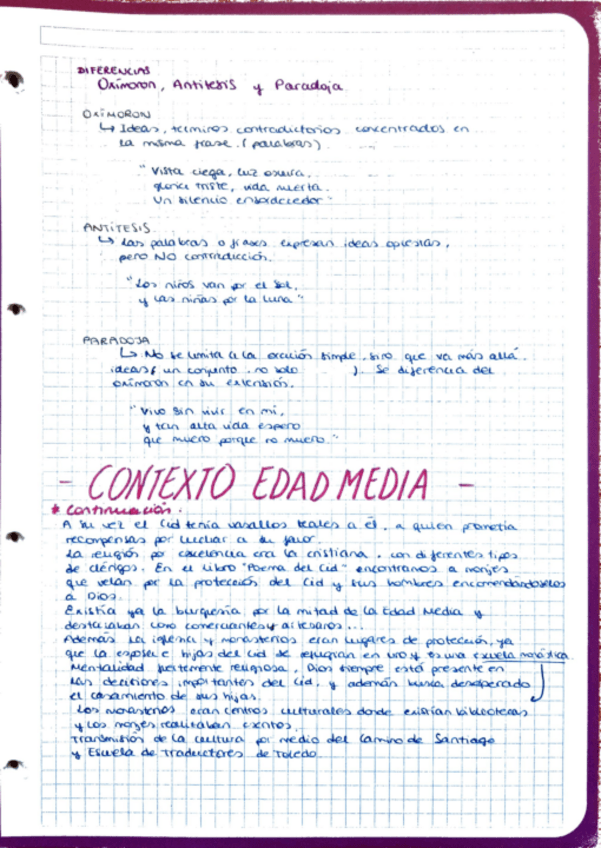 DIFERENCIAS
Oxímoron, Antítesis y Paradoja
OXÍMORON
↳ Ideas, términos contradictorios concentrados en
la misma frase. (palabras)
"Vista ciega, luz oscura,
gloria triste, vida muerta.
Un silencio ensordecedor"
ANTÍTESIS
↳ Las palabras o frases expresan ideas opuestas,
pero NO contradicción.
"Los niños van por el sol,
y las niñas por la luna"
PARADOJA
↳ No se limita a la oración simple, sino que va más allá.
ideas( un conjunto, no solo ). Se diferencia del
oxímoron en su extensión.
"Vivo sin vivir en mí,
y tan alta vida espero
que muero porque no muero."
- CONTEXTO EDAD MEDIA -
* Continuación.
A su vez el Cid tenía vasallos leales a él, a quien prometía
recompensas por luchar a su favor.
La religión por excelencia era la cristiana, con diferentes tipos
de clérigos. En el libro "Poema del Cid" encontramos a monjes
que velan por la protección del Cid y sus hombres encomendándoselos
a Dios.
Existía ya la burguesía por la mitad de la Edad Media y
destacaban como comerciantes y artesanos...
Además la iglesia y monasterios eran lugares de protección, ya
que la esposa e hijas del Cid se refugian en uno y es una escuela
Mentalidad fuertemente religiosa, Dios siempre está presente en
las decisiones importantes del Cid, y además busca desesperado
el casamiento de sus hijas.
Los monasterios eran centros culturales donde existían bibliotecas
y los monjes realizaban escritos.
Transmisión de la cultura por medio del Camino de Santiago
y Escuela de Traductores de Toledo.